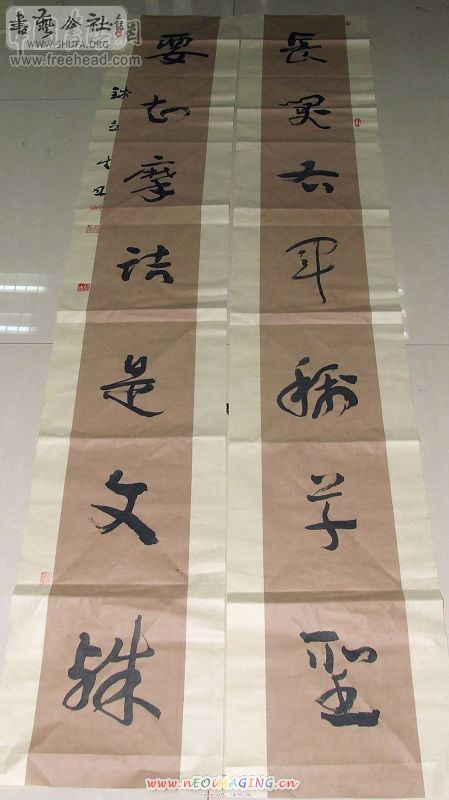 書藝公社
WWW.SHUFA.ORG
www.freehead.com
長笑右軍稱草聖
要知摩詰是文殊
www.nEOiMAGiNG.cn